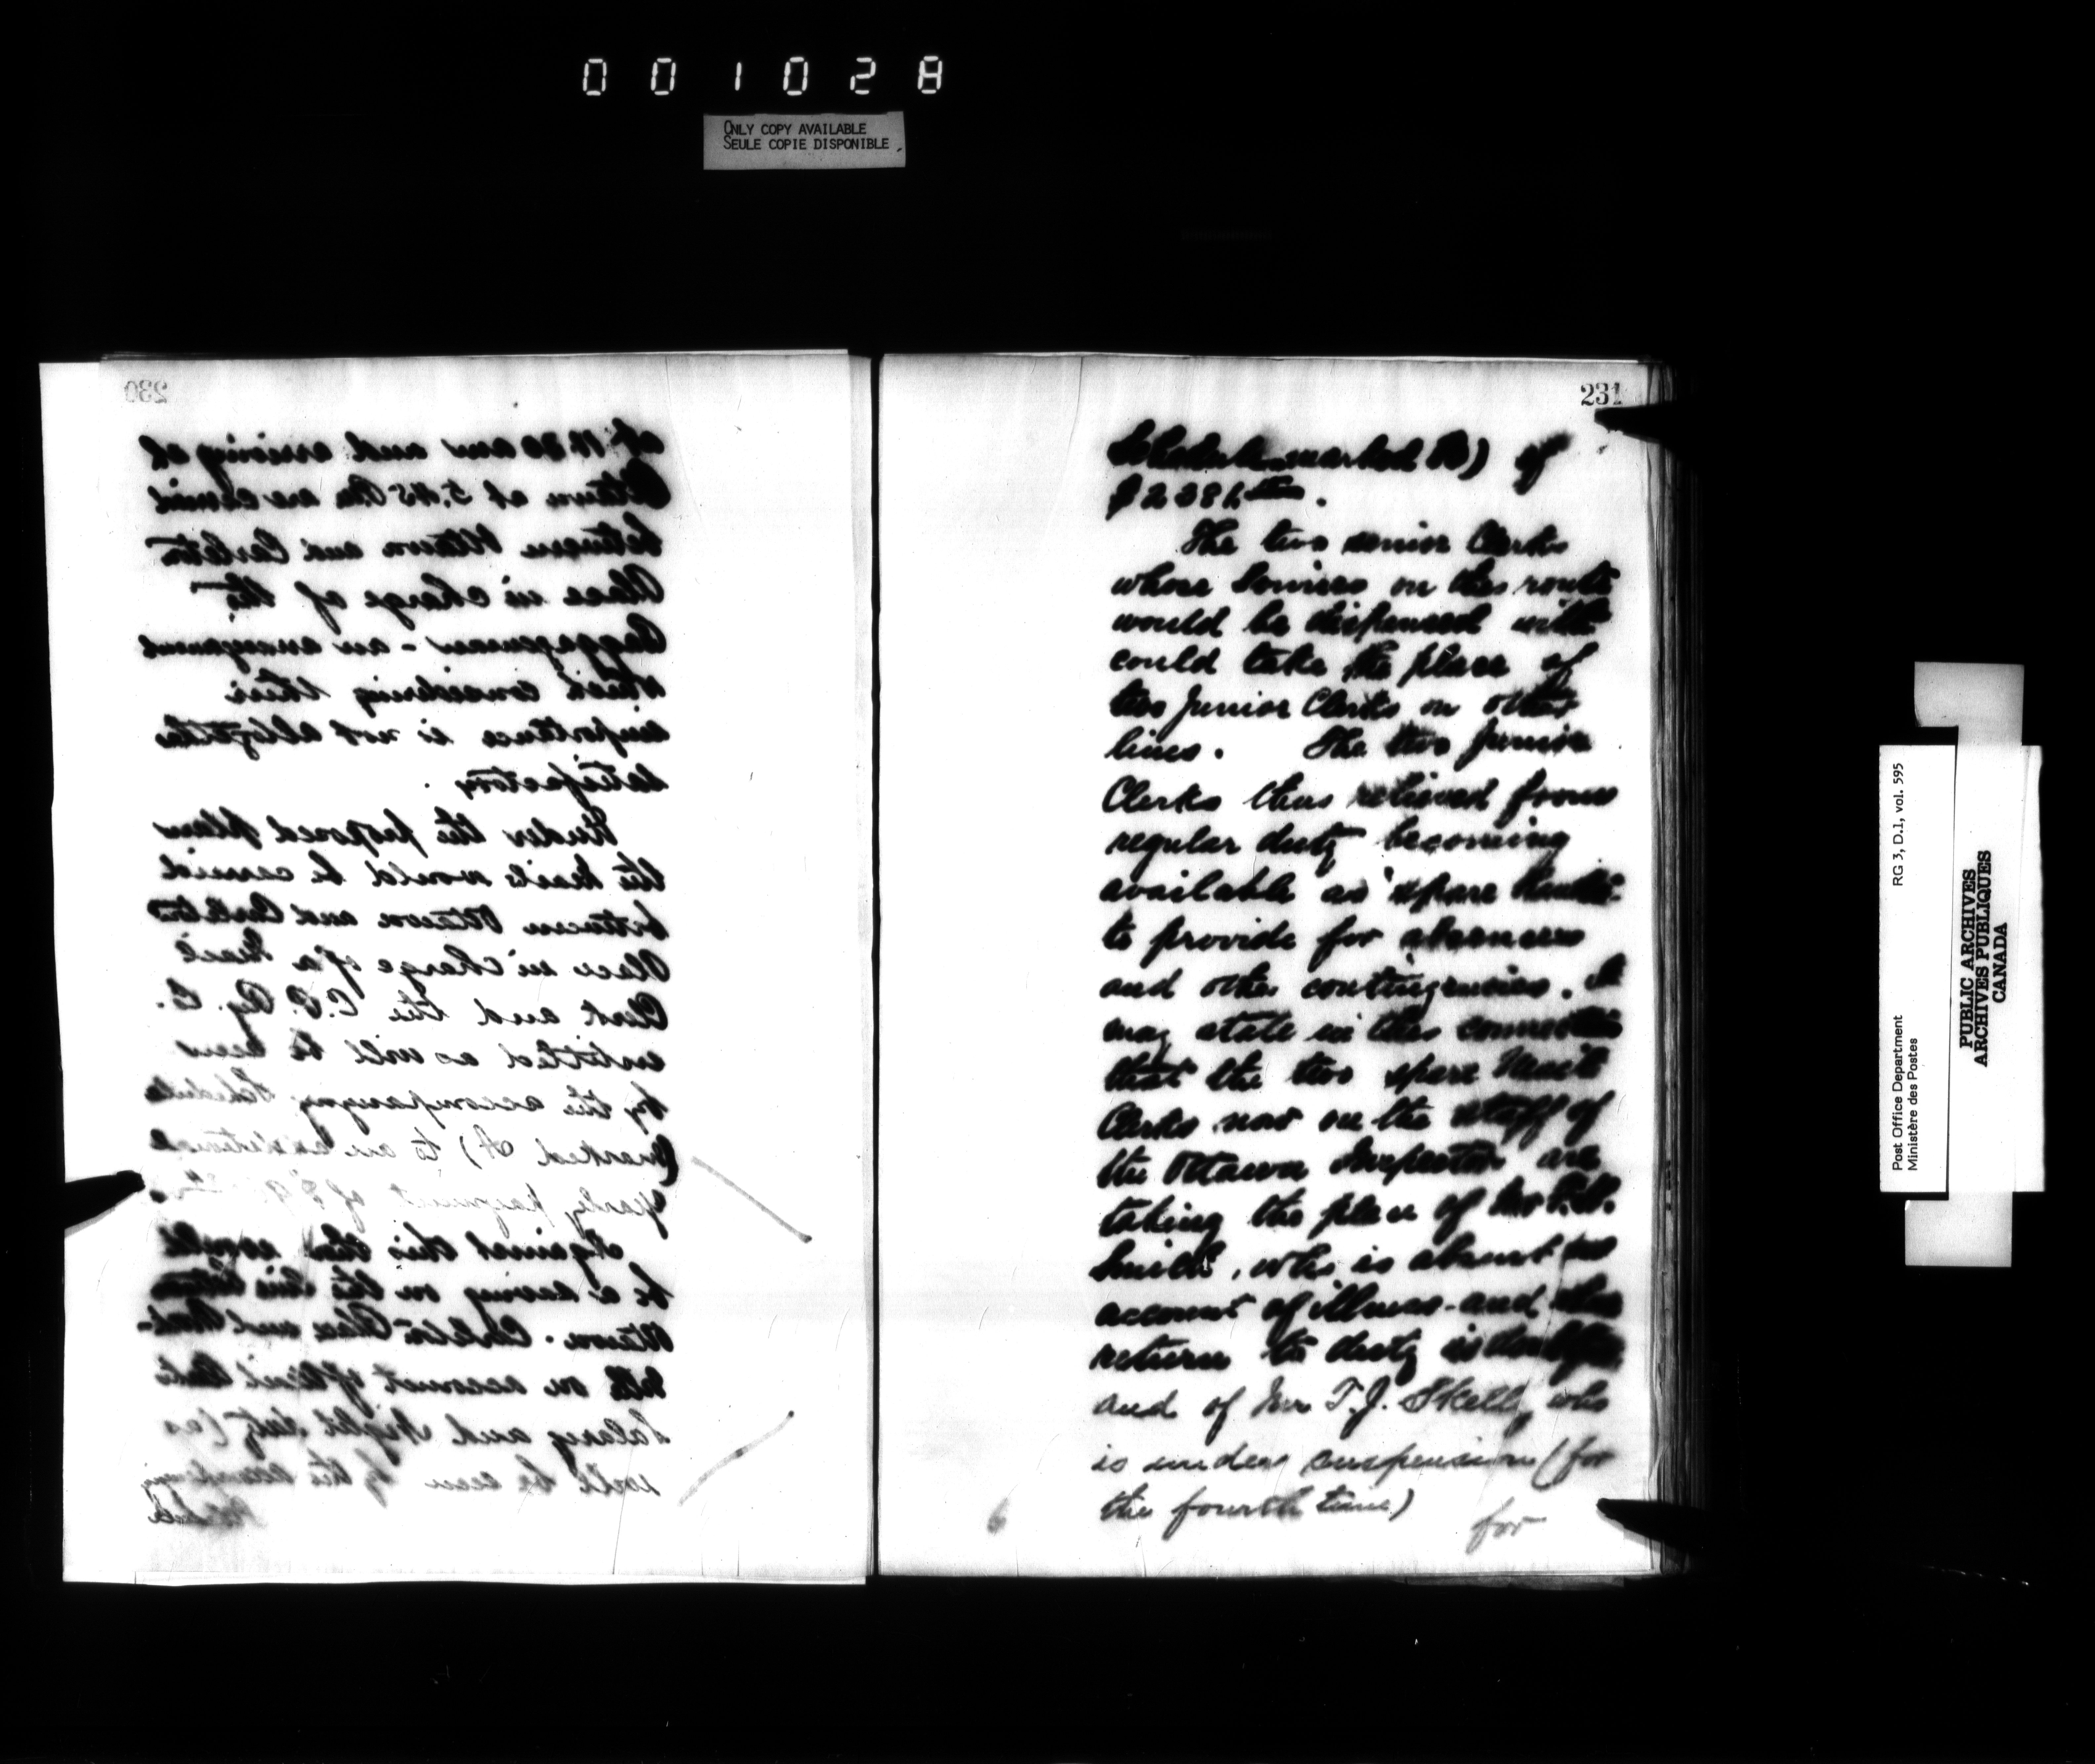 0 0 1 0 2 8
ONLY COPY AVAILABLE
SEULE COPIE DISPONIBLE
230
at 11.30 am and arriving at
Ottawa at 5.45 Pm are carried
between Ottawa and Carleton
Place in charge of the
Baggagemen - an arrangement
which considering their
importance is not altogether
satisfactory.
Under the proposed plan
the mails would be carried
between Ottawa and Carleton
Place in charge of a Mail
Clerk and the C. P. Ry. Co.
entitled as will be seen
by the accompanying Schedule
(marked A) to an additional
yearly payment of $
Against this there would
be a saving on the line between
Ottawa - Carleton Place and
on account of
Salary and Night duty (as
will be seen by the accompanying
231
Schedule marked B) of
$2386
The two senior Clerks
whose Services on this route
would be dispensed with
could take the place of
two Junior Clerks on other
lines. The two Junior
Clerks thus relieved from
regular duty becoming
available as spare Hands
to provide for absences
and other contingencies. I
may state in this connection
that the two spare Mail
Clerks now on the staff of
the Ottawa Inspector are
taking the place of Mr
Smith, who is absent on
account of illness - and whose
return to duty is doubtful
and of Mr T. J. Skelly who
is under suspension (for
the fourth time)
for
6
Post Office Department RG 3, D.1, vol. 595
Ministère des Postes
PUBLIC ARCHIVES
ARCHIVES PUBLIQUES
CANADA